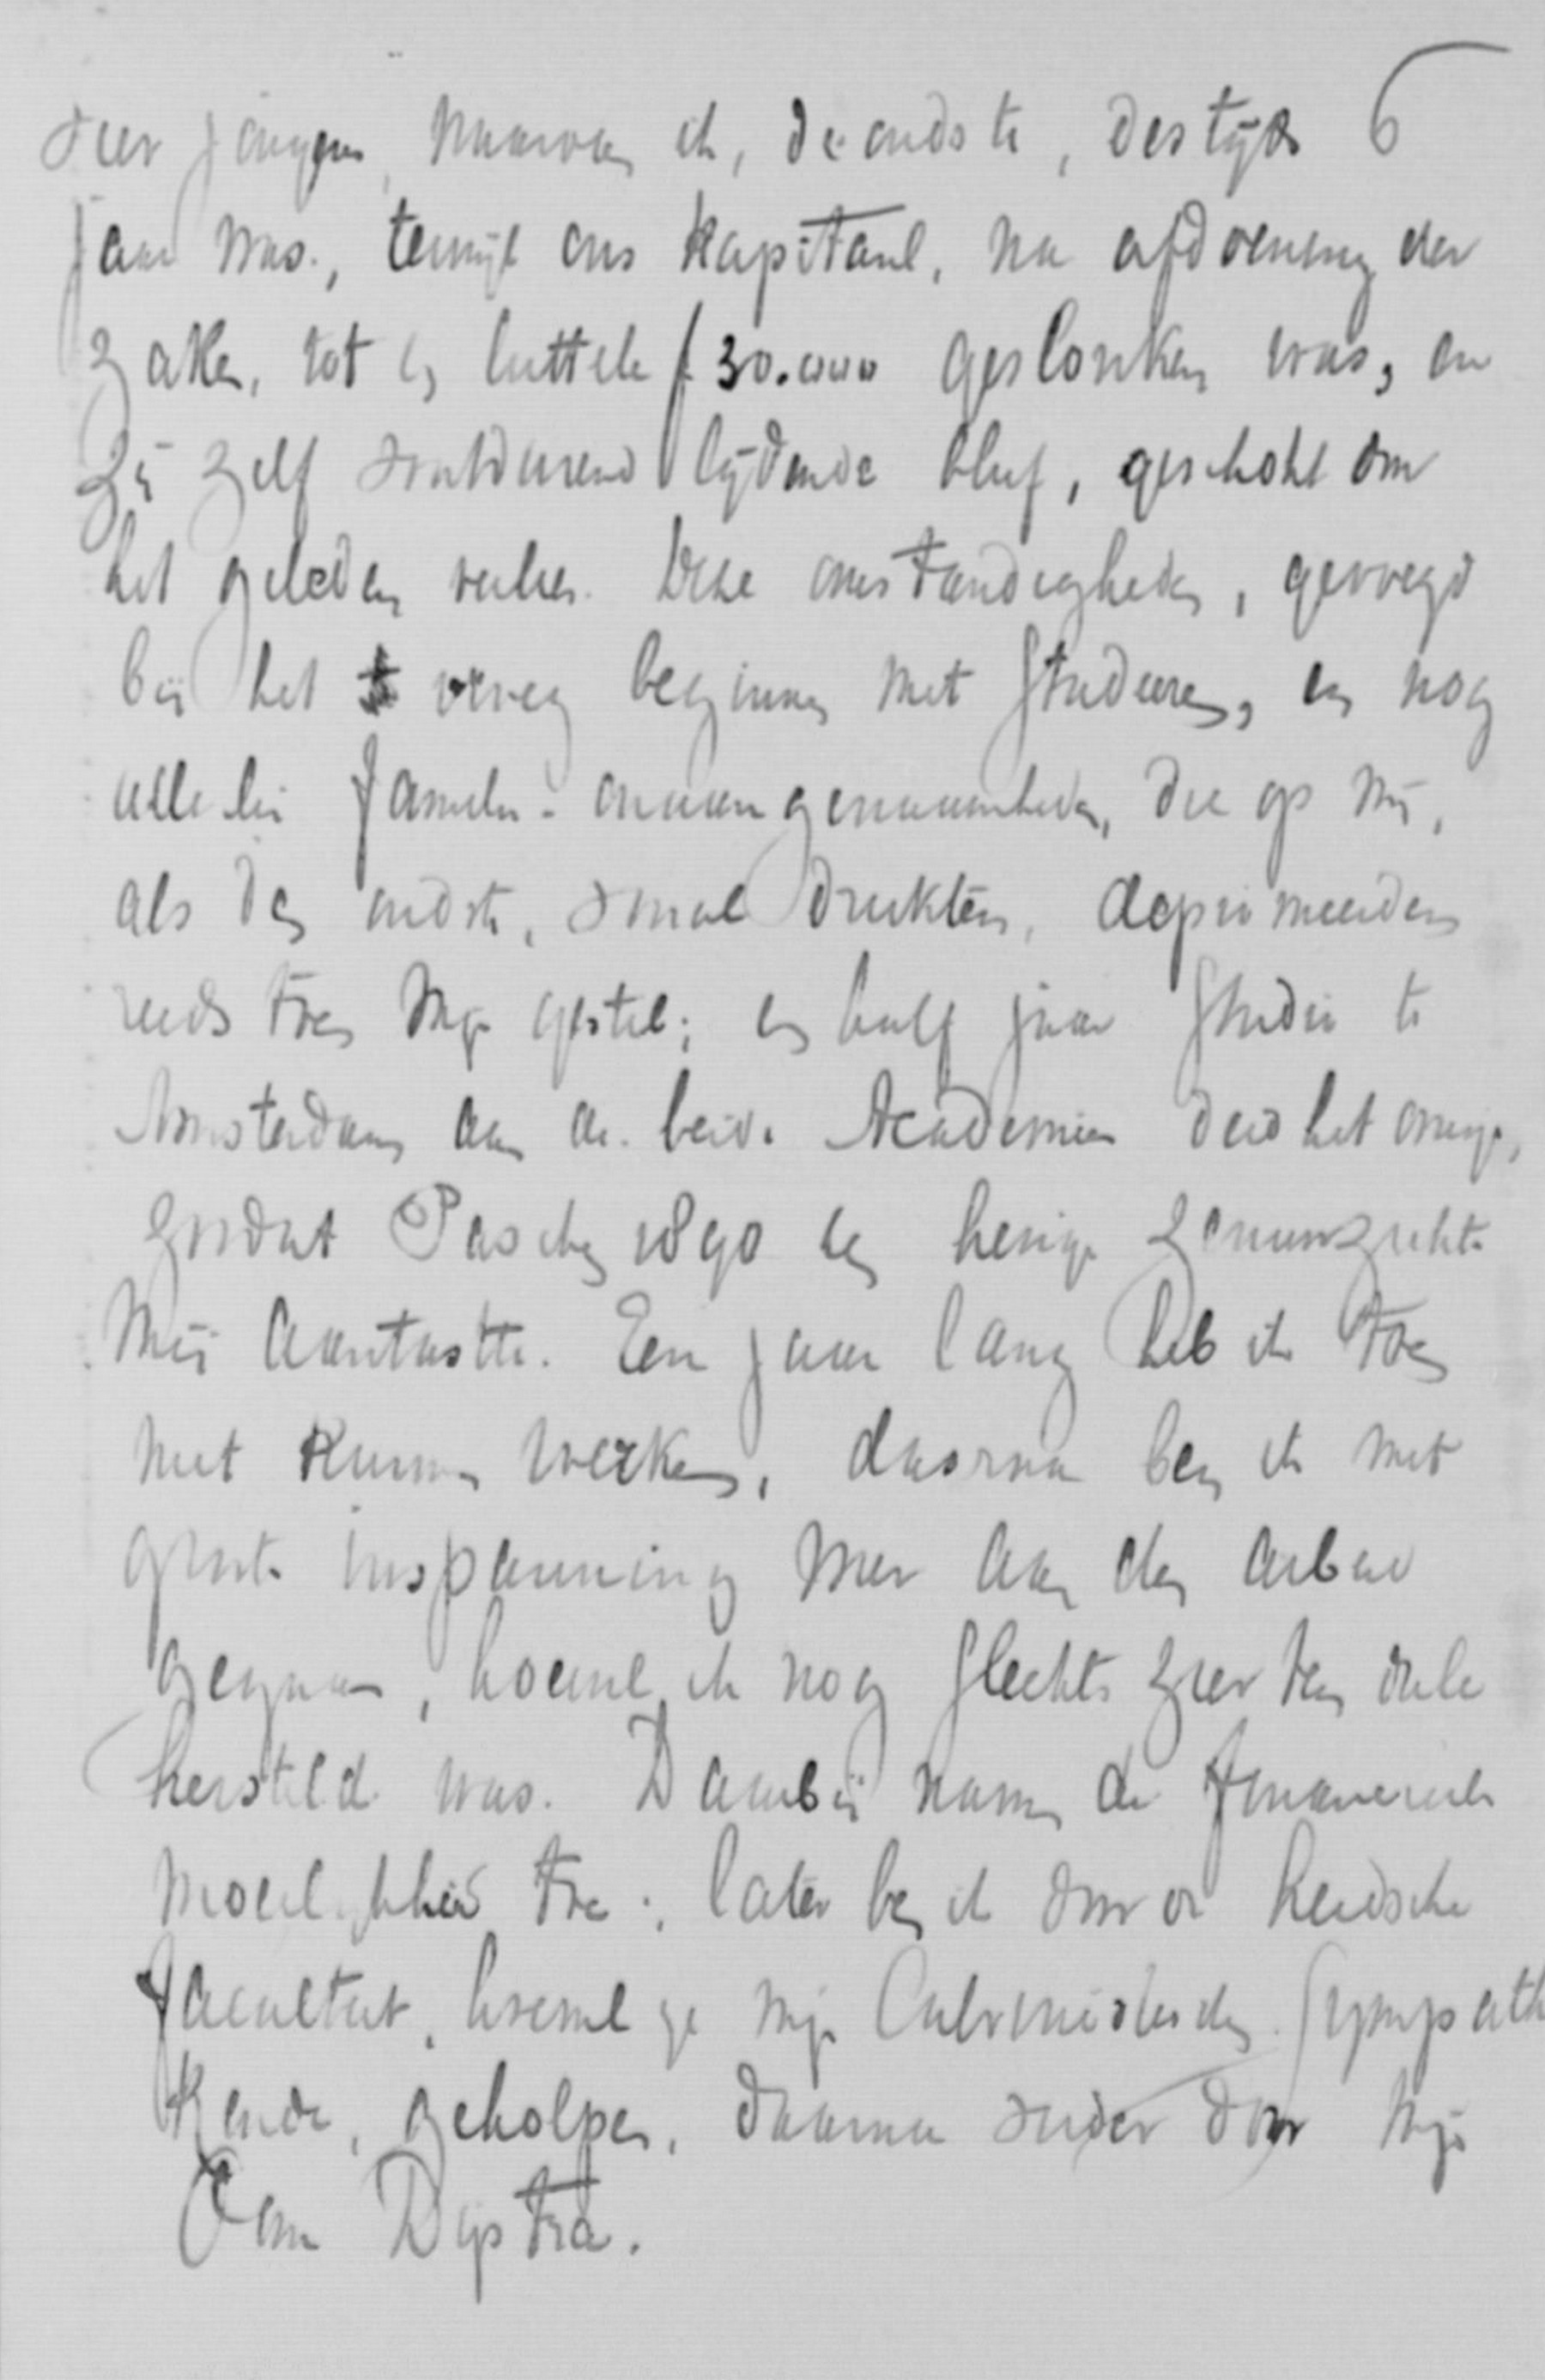 vier jongens, waarvan ik, de oudste, destijds 6
jaar was, terwijl ons kapitaal, na afdoening der
zaken, tot en luttele f 30.000 geslonken was, en
zij zelf voortdurend lijdende bleef, geschokt om
het geleden verlies. Deze omstandigheden, gevoegd
bij het vroeg beginnen met studeeren, en nog
allerlei familie-onaangenaamheden, die op mij,
als den oudste, vooral drukten, deprimeerden
reeds toen mijn gestel; en half jaar studie te
Amsterdam aan de beide Academien deed het overige,
zoodat Paschen 1890 en hevige zenuwziekte
mij aantastte. Een jaar lang heb ik toen
niet kunnen werken, daarna ben ik met
groote inspanning weer aan den arbeid
gegaan, hoewel ik nog slechts zeer ten deele
hersteld was. Daarbij namen de financieele
moeilijkheid toe; later ben ik door de Leidsche
faculteit, hoewel ze mijn Calvinistische sympath
kende, geholpen, daarna verder door mijn
Oom Dijstra.